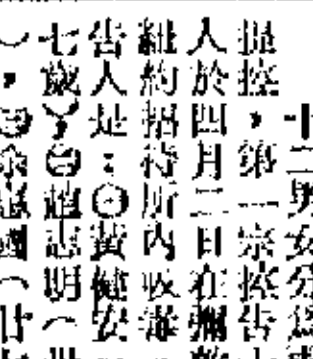 十二男女分爲
提控，第一宗控告
人於四月二日在彌敦
紐約招待所內吸毒
告人是：⊙黃健安
七歲）㊁趙志明（
），㊂余國（廿